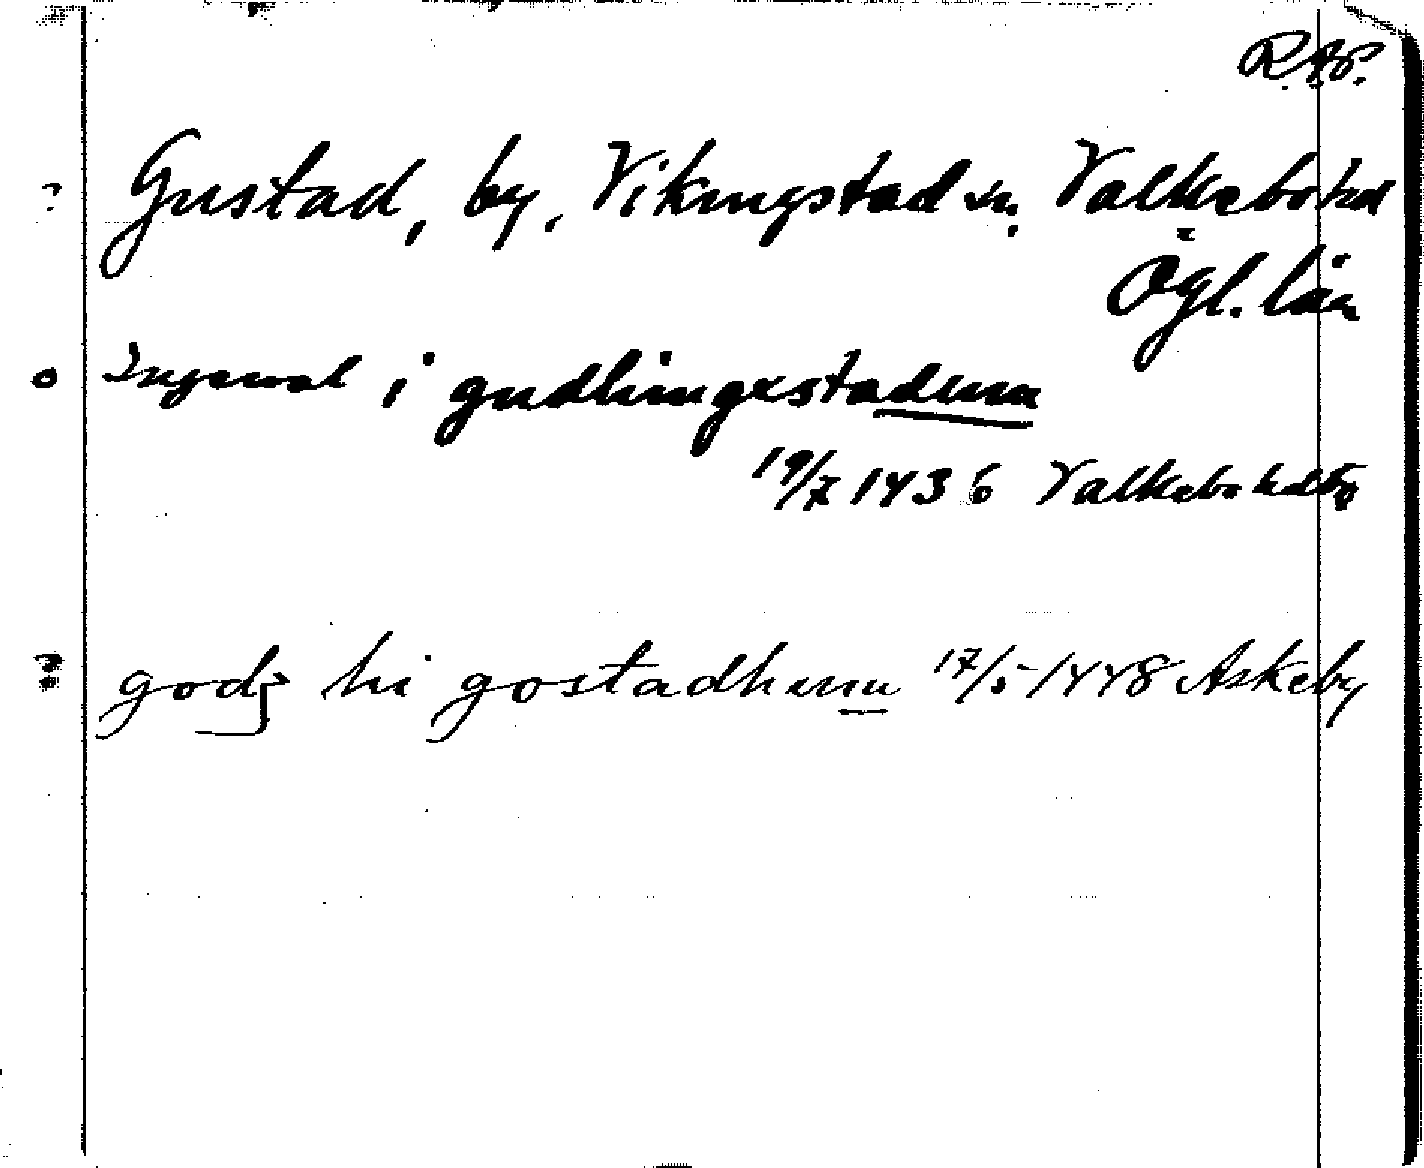 R.A.P.
? Gustad, by, Vikingstad sn, Valkebo hd
Ögl. län
o Ingewal i gudhingestadum
19/7 1436 Valkebo hdtg
? godz hi gostadhenu 17/5 1448 Askeby